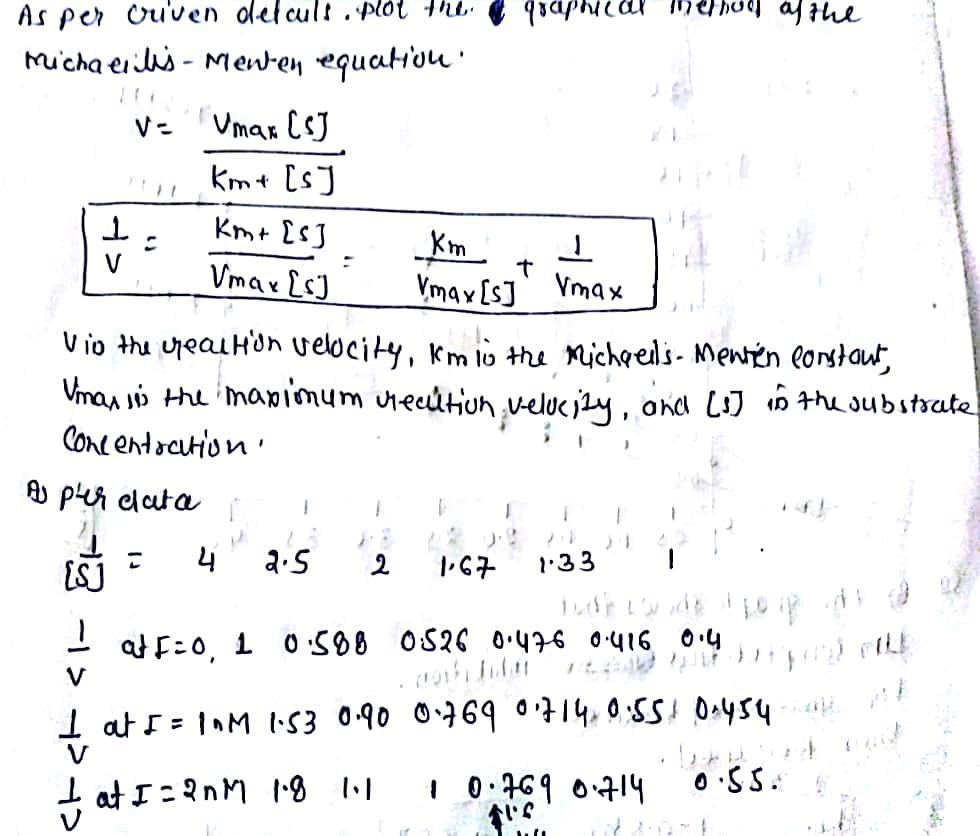 As per Given details. plot the graphical method of the
Michaeilis - Menten equation.
V = Vmax [S]
Km + [S]
1/V = Km + [S] / Vmax [S] = Km / Vmax [S] + 1 / Vmax
V is the reaction velocity, Km is the Michaelis - Menten constant,
Vmax is the maximum reaction velocity, and [S] is the substrate
Concentration.
As per data
1/[S] = 4 2.5 2 1.67 1.33 1
1/V at I=0, 1 0.588 0.526 0.476 0.416 0.4
1/V at I = 1nM 1.53 0.90 0.769 0.714 0.55 0.454
1/V at I = 2nM 1.8 1.1 1 0.769 0.714 0.55.